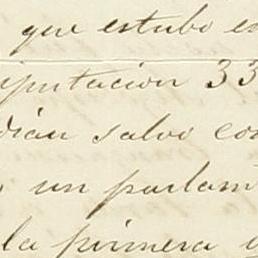 que estubo e
iputacion 33
dian salvo con
un parlam
la primera